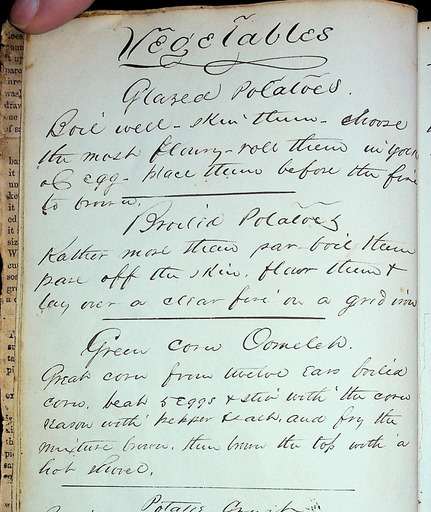 Vegetables
Glazed Potatoes.
Boil well - skin them - choose
the most floury - roll them in yolk
of egg - place them before the fire
to brown.
Broiled Potatoes
Rather more than par-boil them
pare off the skin. flour them &
lay over a clear fire on a grid iron
Green corn Oomelet.
Great corn from twelve Ears boiled
corn. beat 5 eggs & stir with the corn
season with pepper & salt, and fry the
mixture brown. then brown the top with a
hot shovel.
Potato